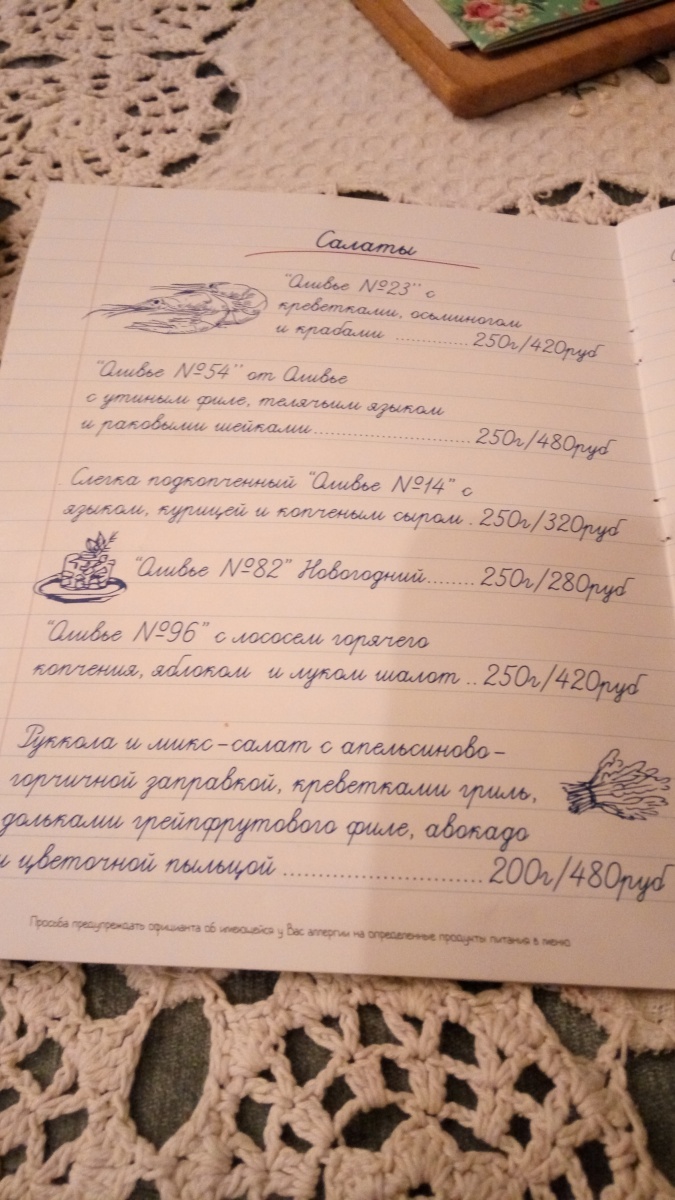 Салаты
"Оливье №23" с
креветками, осьминогом
и крабами ............. 250г/420руб
"Оливье №54" от Оливье
с утиным филе, телячьим языком
и раковыми шейками........................... 250г/480руб
Слегка подкопченный "Оливье №14" с
языком, курицей и копченым сыром . 250г/320руб
"Оливье №82" Новогодний........ 250г/280руб
"Оливье №96" с лососем горячего
копчения, яблоком и луком шалот .. 250г/420руб
Руккола и микс-салат с апельсиново-
горчичной заправкой, креветками гриль,
дольками грейпфрутового филе, авокадо
и цветочной пыльцой ............................ 200г/480руб
Просьба предупреждать официанта об имеющейся у Вас аллергии на определенные продукты питания в меню.